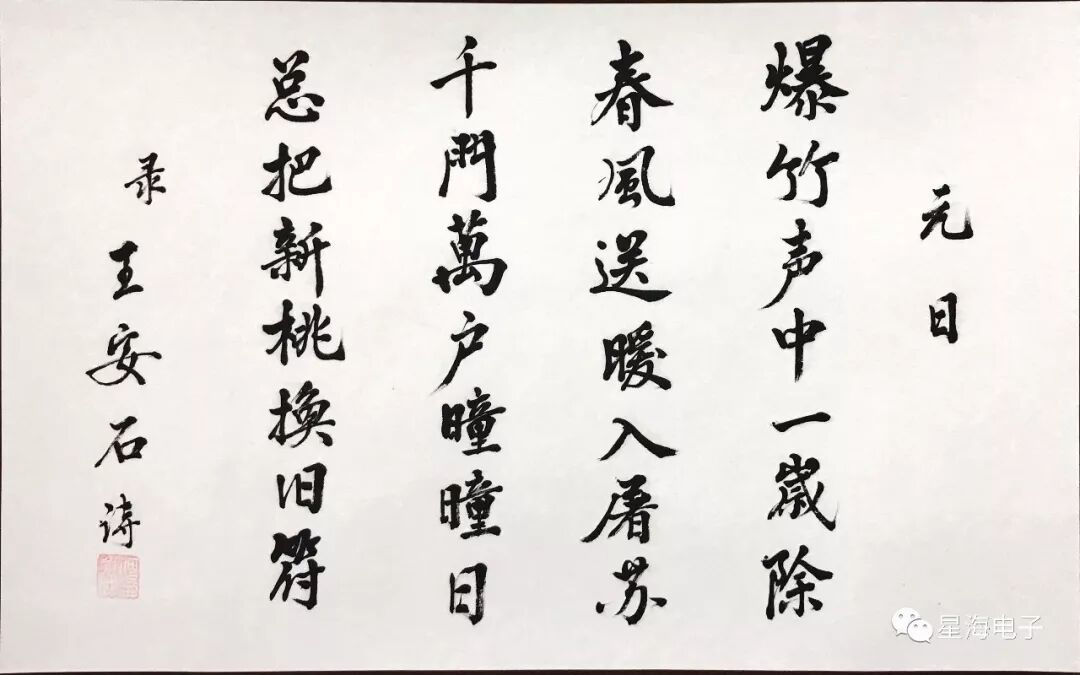 元日
爆竹声中一歲除
春風送暖入屠苏
千門萬户曈曈日
总把新桃換旧符
录王安石诗
星海电子